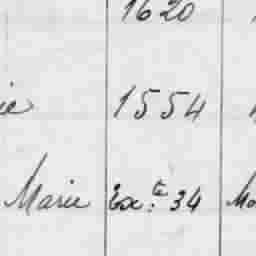 1620
ie 1554
Marie Ex.te 34 Ma